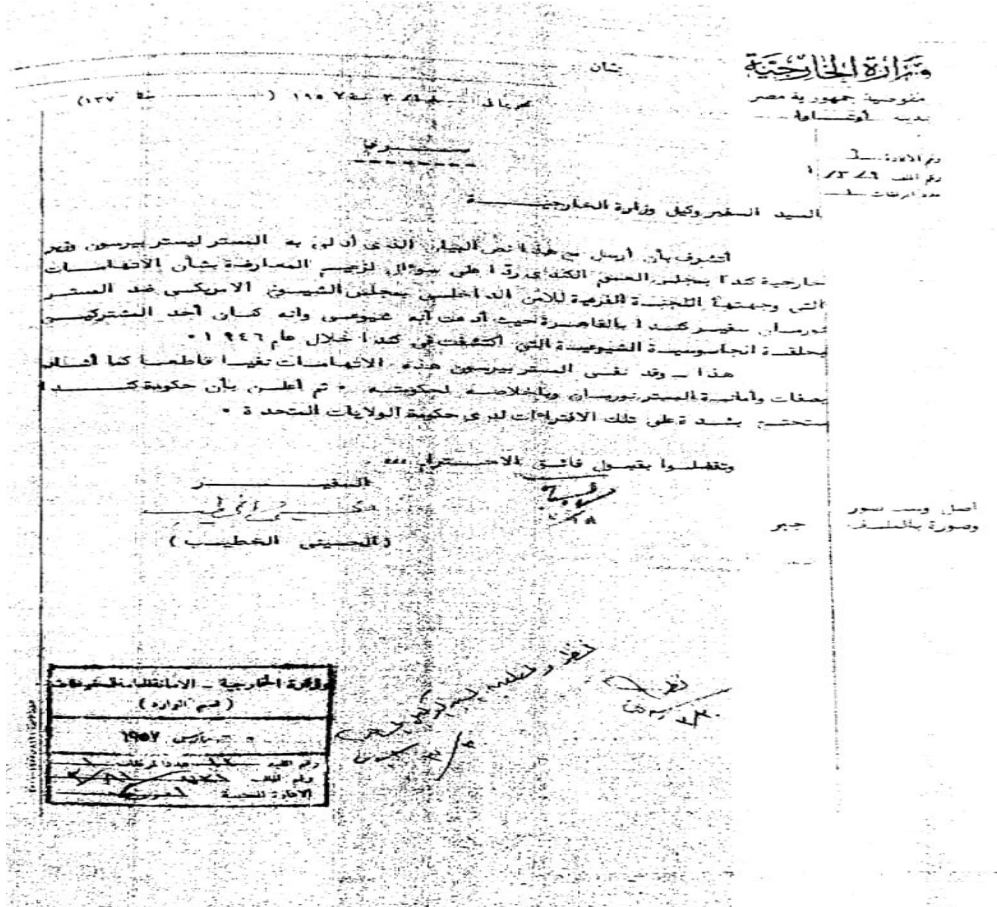 وزارة الخارجية
مفوضية جمهورية مصر
بمدينة أوتاوا
بشأن
١٩٥٧ (١٣٧)
سرى
رقم الملف
عدد المرفقات ١
السيد السفير وكيل وزارة الخارجيـــة
أتشرف بأن أرسل مع هذا نص البيان الذى أدلى به المستر ليستر بيرسون وزير
خارجية كندا بمجلس العموم الكندى ردا على سؤال لزعيم المعارضة بشأن الاتهامـــات
التى وجهتها اللجنة الفرعية للأمن الداخلى بمجلس الشيوخ الامريكى ضد المستر
نورمان سفير كندا بالقاهرة حيث أدعت أنه شيوعى وانه كان أحد المشتركين
بحلقة الجاسوسية الشيوعية التى اكتشفت فى كندا خلال عام ١٩٤٦ ٠
هذا ــ وقد نفى المستر بيرسون هذه الاتهامات نفيا قاطعا كما أشاد
بصفات وأمانة المستر نورمان وباخلاصه لحكومته ٠ ثم أعلن بأن حكومة كندا
ستحتج بشدة على تلك الافتراءات لدى حكومة الولايات المتحدة ٠
وتفضلوا بقبول فائق الاحترام ،،،
السفير
(الحسينى الخطيب)
أصل
وصورة بالملف
وزارة الخارجية ــ الامانة العامة للمحفوظات
(قسم الوارد)
مارس ١٩٥٧
رقم القيد عدد المرفقات ١
رقم الملف
الادارة المختصة